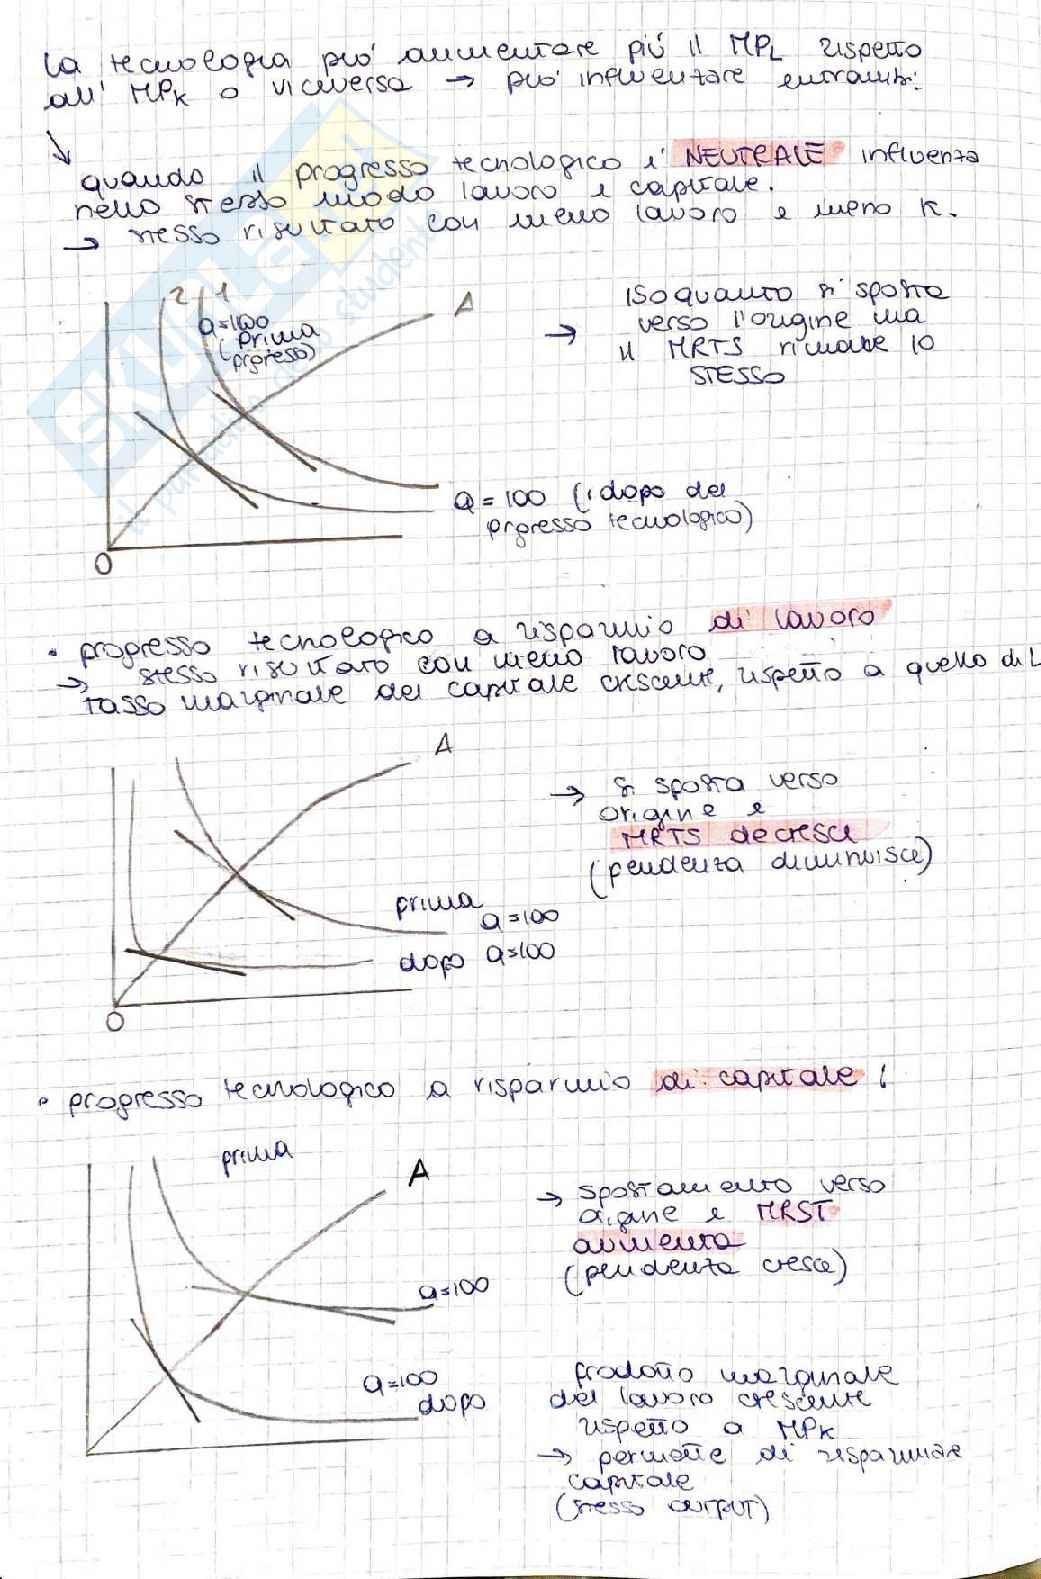 la tecnologia può aumentare più il MPL rispetto
all' MPK o viceversa → può influenzare entrambi:
↘
quando il progresso tecnologico è NEUTRALE influenza
nello stesso modo lavoro e capitale.
→ stesso risultato con meno lavoro e meno K.
2 1
Q=100
(prima
progresso)
A
→ ISOquanto si sposta
verso l'origine ma
il MRTS rimane lo
STESSO
Q = 100 (dopo del
progresso tecnologico)
O
• progresso tecnologico a risparmio di lavoro
→ stesso risultato con meno lavoro
tasso marginale del capitale crescente, rispetto a quello di L
A
→ si sposta verso
origine e
MRTS decresce
(pendenza diminuisce)
prima
Q=100
dopo Q=100
O
• progresso tecnologico a risparmio di capitale :
prima
A
→ spostamento verso
origine e MRST
aumenta
(pendenza cresce)
Q=100
Q=100
dopo
prodotto marginale
del lavoro crescente
rispetto a MPK
→ permette di risparmiare
capitale
(stesso OUTPUT)
SKUOLA
il punto di studenti